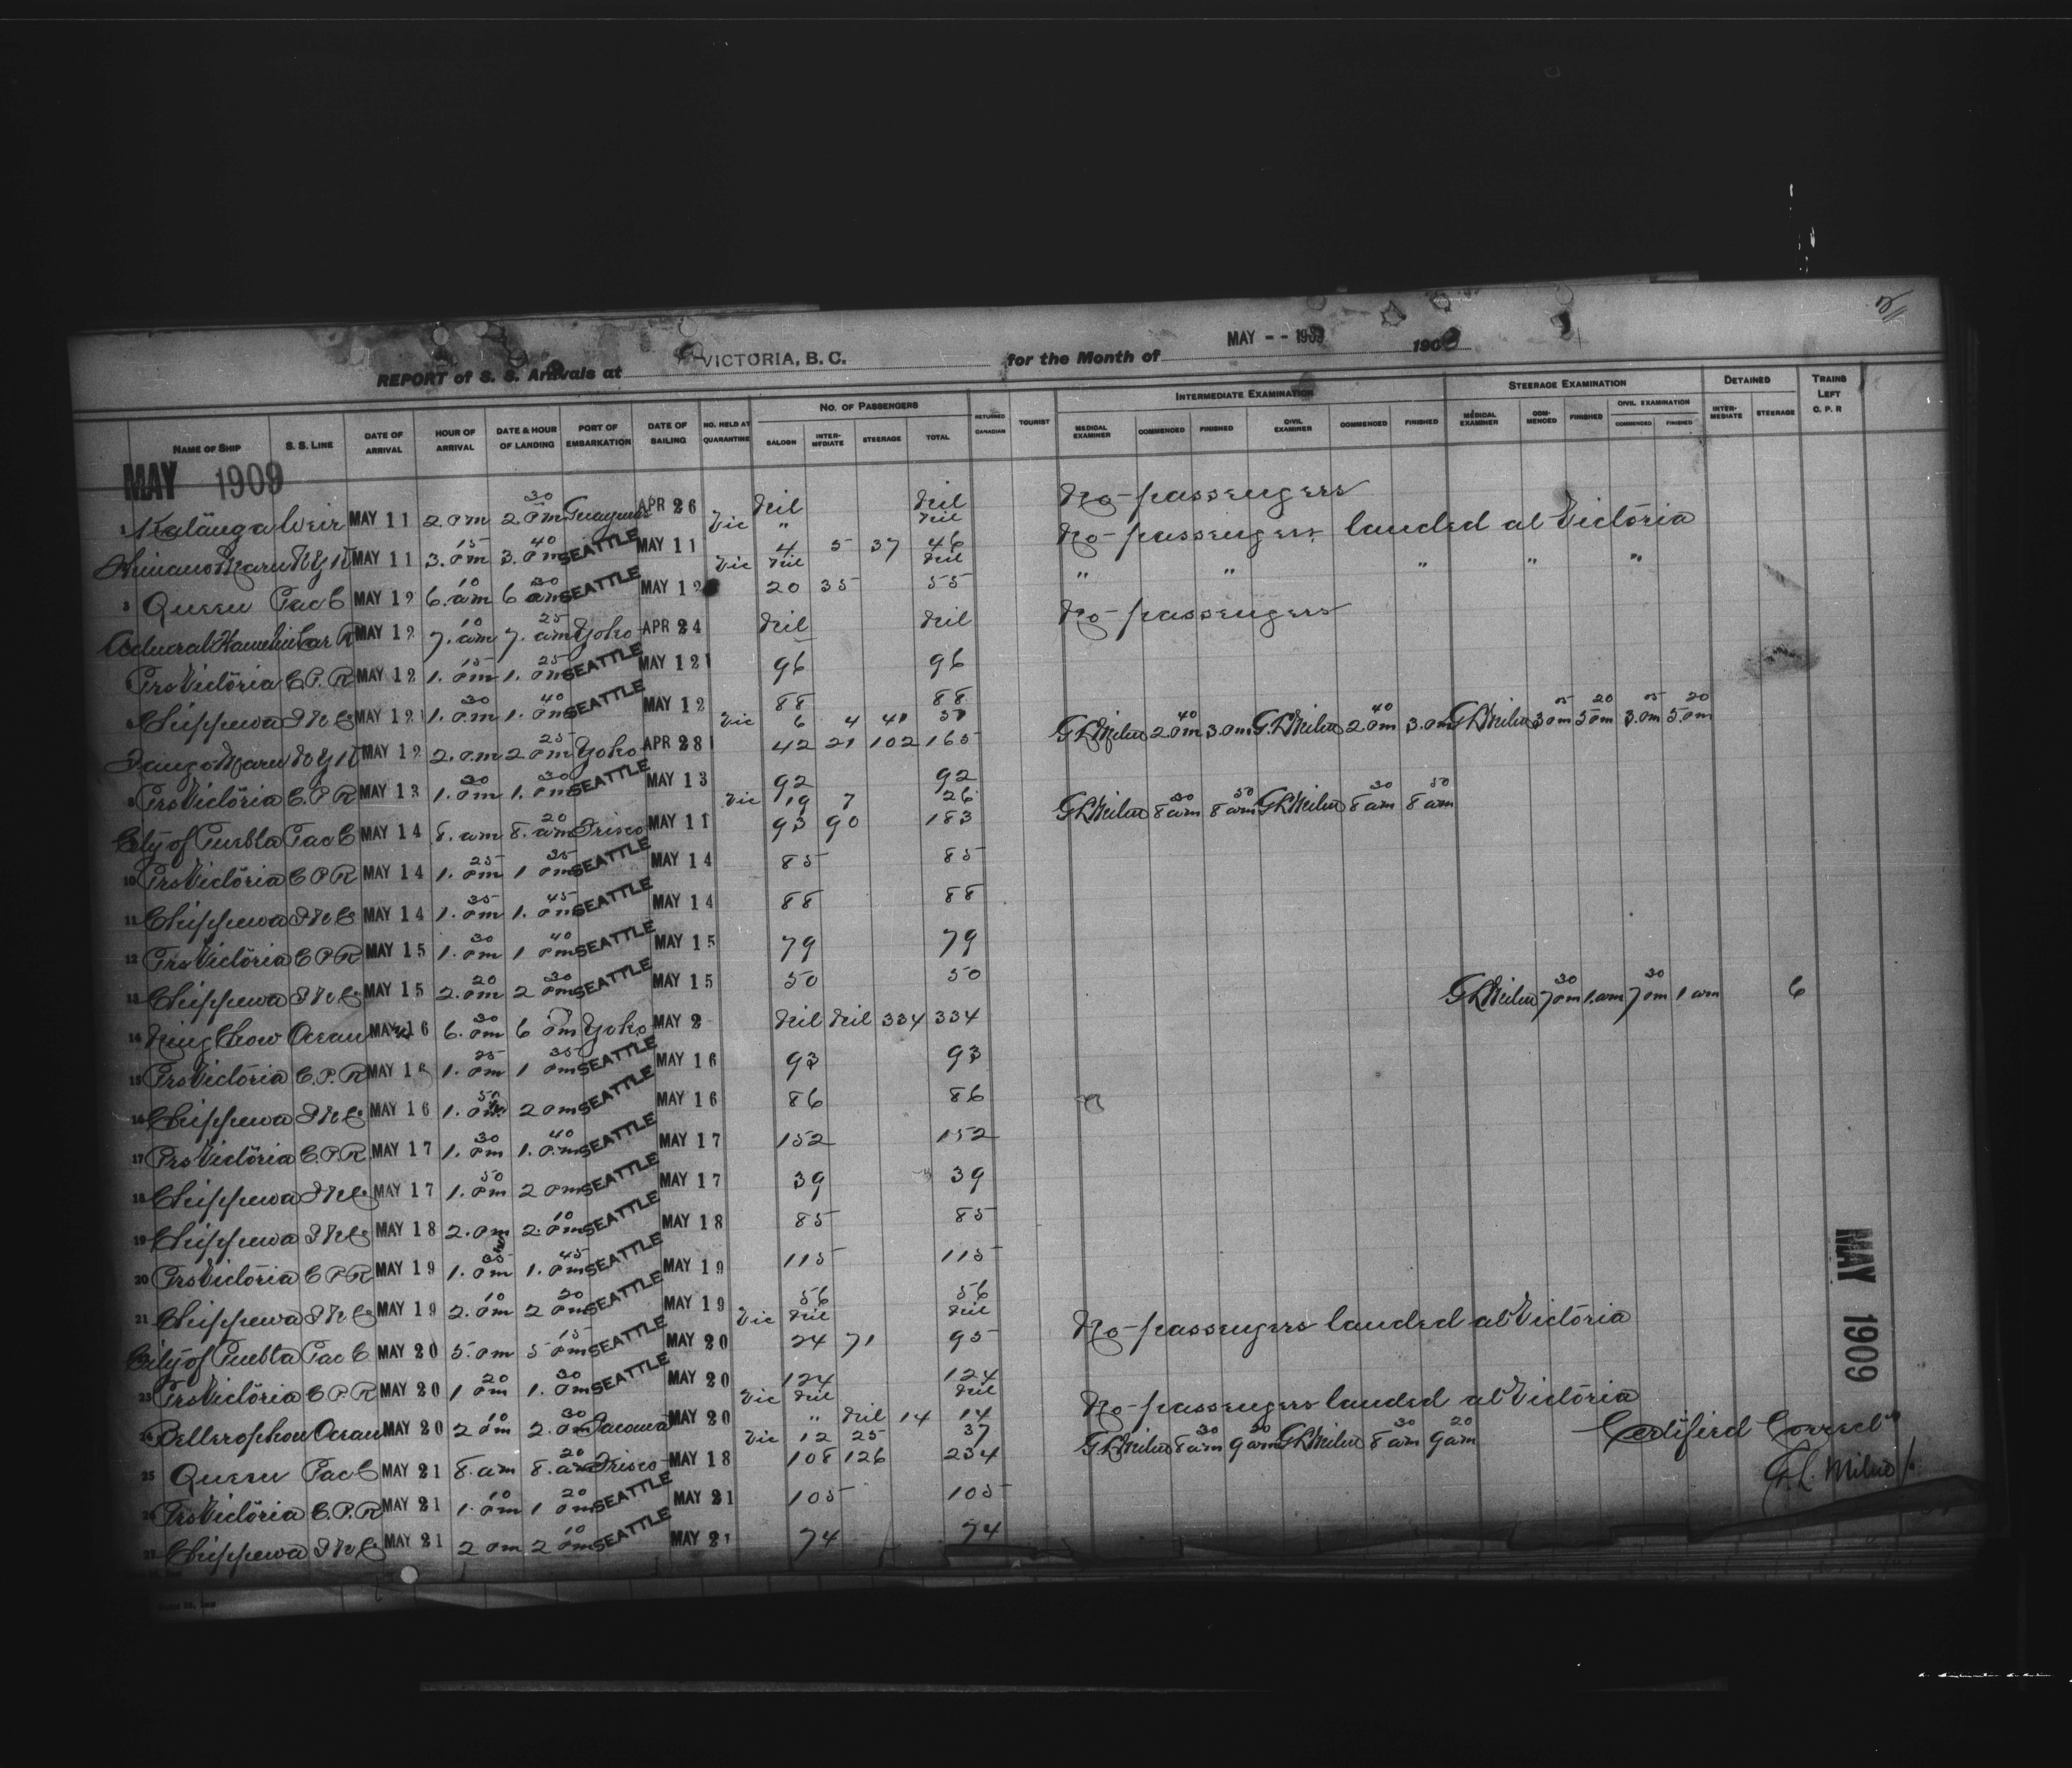 REPORT of S. S. Arrivals at VICTORIA, B. C. for the Month of MAY - - 1909 190
NAME OF SHIP S. S. LINE DATE OF ARRIVAL HOUR OF ARRIVAL DATE & HOUR OF LANDING PORT OF EMBARKATION DATE OF SAILING NO. HELD AT QUARANTINE NO. OF PASSENGERS SALOON INTERMEDIATE STEERAGE TOTAL RETURNED CANADIAN TOURIST INTERMEDIATE EXAMINATION MEDICAL EXAMINER COMMENCED FINISHED CIVIL EXAMINER COMMENCED FINISHED STEERAGE EXAMINATION MEDICAL EXAMINER COMMENCED FINISHED CIVIL EXAMINATION COMMENCED FINISHED DETAINED INTERMEDIATE STEERAGE TRAINS LEFT C. P. R
MAY 1909
1 Weir MAY 11 2. pm 2.30 pm Guaymas APR 26 Nil Nil No passengers
Vic " Nil No passengers landed at Victoria
Maru N Y K MAY 11 3.15 pm 3.40 pm SEATTLE MAY 11 4 5 37 46
Vic Nil Nil " " " " "
3 Queen Pac C MAY 12 6.10 am 6.30 am SEATTLE MAY 12 20 35 55
MAY 12 7.10 am 7.25 am Yoko APR 24 Nil Nil No passengers
Prs Victoria C. P. R MAY 12 1.15 pm 1.25 pm SEATTLE MAY 12 96 96
Chippewa MAY 12 1.30 pm 1.40 pm SEATTLE MAY 12 88 88
Vic 6 4 41 51 G L Milne 2.40 pm 3. pm G. L Milne 2.40 pm 3. pm G L Milne 3.05 pm 5.20 pm 3.05 pm 5.20 pm
Maru N Y K MAY 12 2. pm 2.25 pm Yoko APR 28 42 21 102 165
8 Prs Victoria C. P R MAY 13 1.30 pm 1.30 pm SEATTLE MAY 13 92 92
Vic 19 7 26 G L Milne 8.30 am 8.50 am G L Milne 8.30 am 8.50 am
City of Puebla Pac C MAY 14 8. am 8.20 am Frisco MAY 11 93 90 183
10 Prs Victoria C P R MAY 14 1.25 pm 1.35 pm SEATTLE MAY 14 85 85
11 Chippewa MAY 14 1.35 pm 1.45 pm SEATTLE MAY 14 88 88
12 Prs Victoria C P R MAY 15 1.30 pm 1.40 pm SEATTLE MAY 15 79 79
13 Chippewa MAY 15 2.20 pm 2.30 pm SEATTLE MAY 15 50 50
G L Milne 7.30 pm 1. am 7.30 pm 1 am 6
14 Ning Chow Ocean MAY 16 6.30 pm 6 pm Yoko MAY 2 Nil Nil 334 334
15 Prs Victoria C. P. R MAY 16 1.25 pm 1.35 pm SEATTLE MAY 16 93 93
16 Chippewa MAY 16 1.50 pm 2 pm SEATTLE MAY 16 86 86
17 Prs Victoria C. P. R. MAY 17 1.30 pm 1.40 pm SEATTLE MAY 17 152 152
18 Chippewa MAY 17 1.50 pm 2 pm SEATTLE MAY 17 39 39
19 Chippewa MAY 18 2. pm 2.10 pm SEATTLE MAY 18 85 85
20 Prs Victoria C P R MAY 19 1.35 pm 1.45 pm SEATTLE MAY 19 115 115
21 Chippewa MAY 19 2.10 pm 2.20 pm SEATTLE MAY 19 56 56
Vic Nil Nil No passengers landed at Victoria
City of Puebla Pac C MAY 20 5. pm 5.15 pm SEATTLE MAY 20 24 71 95
23 Prs Victoria C P R MAY 20 1.20 pm 1.30 pm SEATTLE MAY 20 124 124
Vic Nil Nil No passengers landed at Victoria
24 Bellerophon Ocean MAY 20 2.10 pm 2.30 pm Tacoma MAY 20 " Nil 14 14
Vic 12 25 37 G L Milne 8.30 am 9.20 am G L Milne 8.30 am 9.20 am
25 Queen Pac C MAY 21 8. am 8.20 am Frisco MAY 18 108 126 234
26 Prs Victoria C. P. R MAY 21 1.10 pm 1.20 pm SEATTLE MAY 21 105 105
27 Chippewa MAY 21 2 pm 2.10 pm SEATTLE MAY 21 74 74
Certified Correct
G. L. Milne
MAY 1909